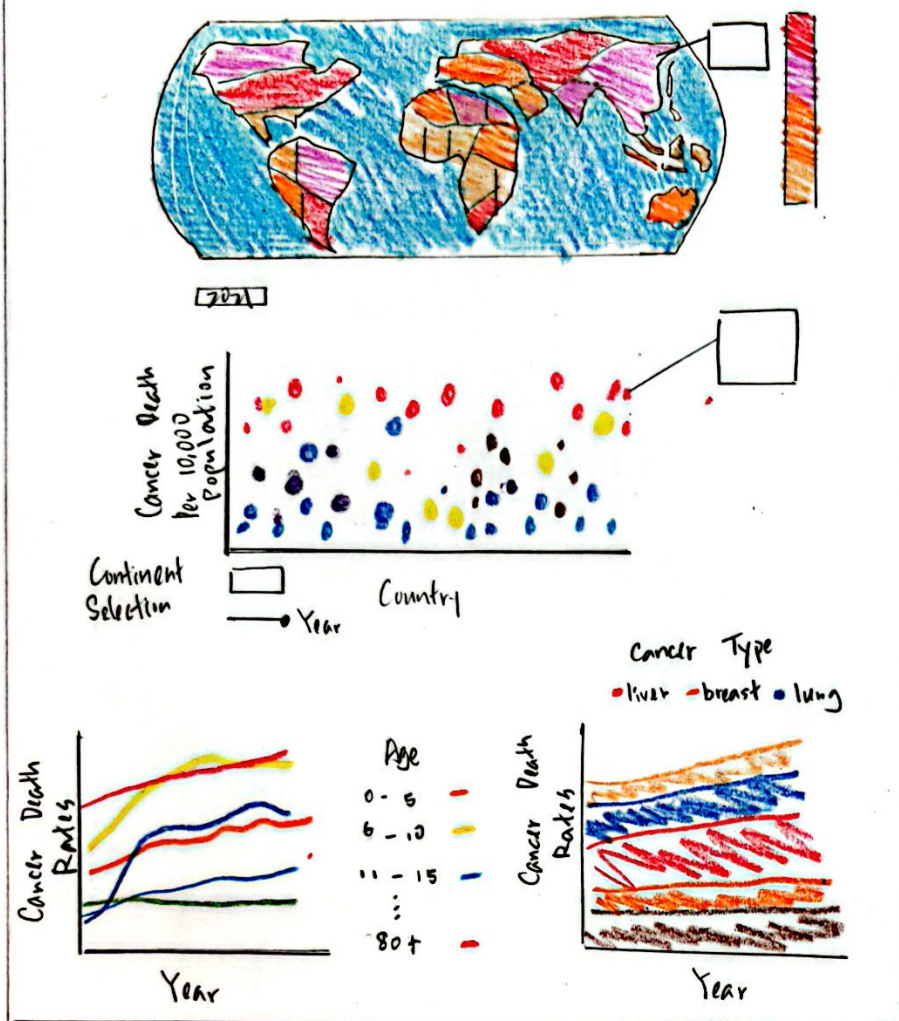 2021
Cancer Death
Per 10,000
Population
Continent
Selection
Country
Year
Cancer Type
liver breast lung
Cancer Death
Rates
Year
Age
0 - 5
6 - 10
11 - 15
80+
Cancer Death
Rates
Year